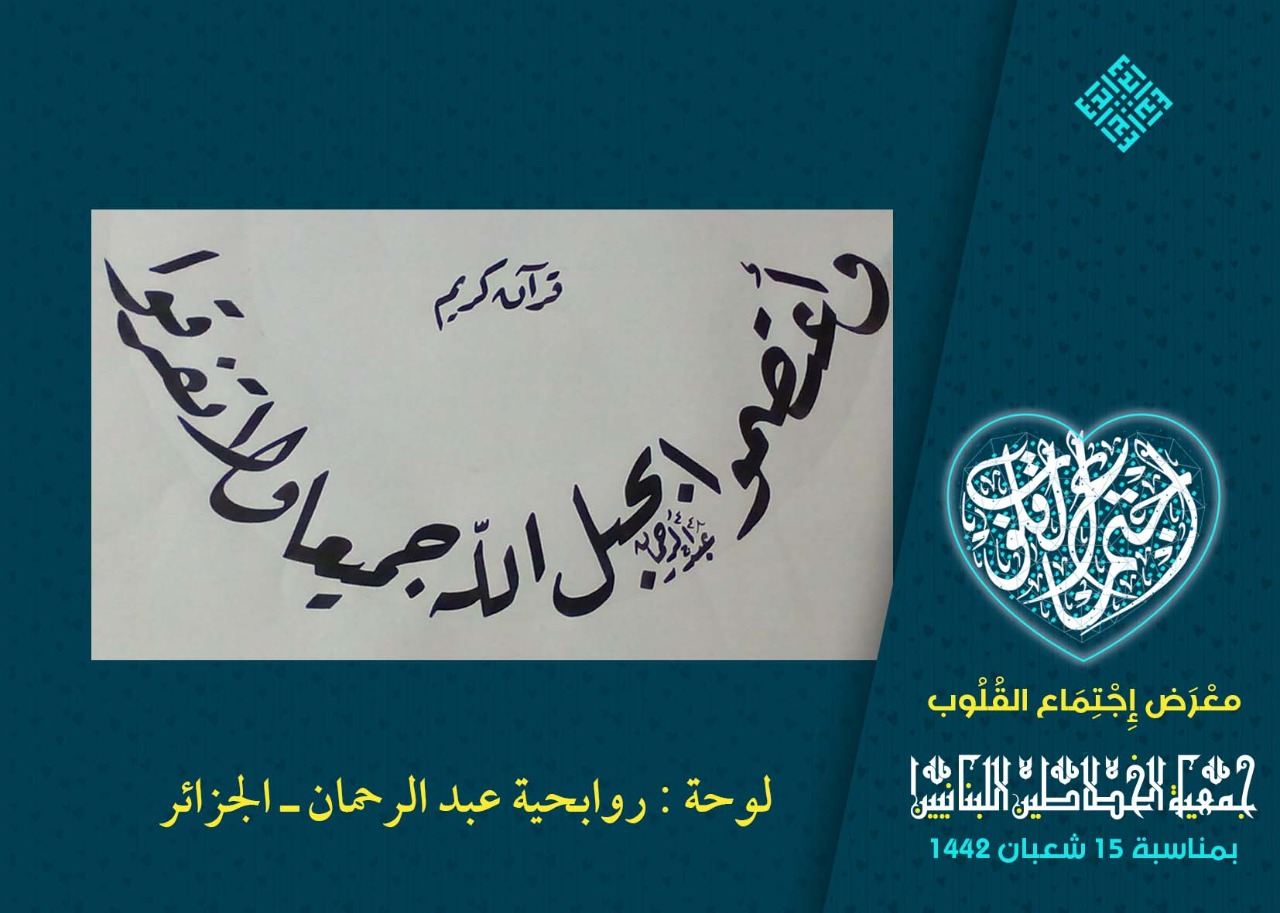 قرآن كريم
واعتصموا بحبل الله جميعا ولا تفرقوا
عبد الرحمان
١٤٤٢
اجتماع القلوب
معْرَض إِجْتِمَاع القُلُوب
جمعية الخطاطين اللبنانيين
بمناسبة 15 شعبان 1442
لوحة : روابحية عبد الرحمان ـ الجزائر